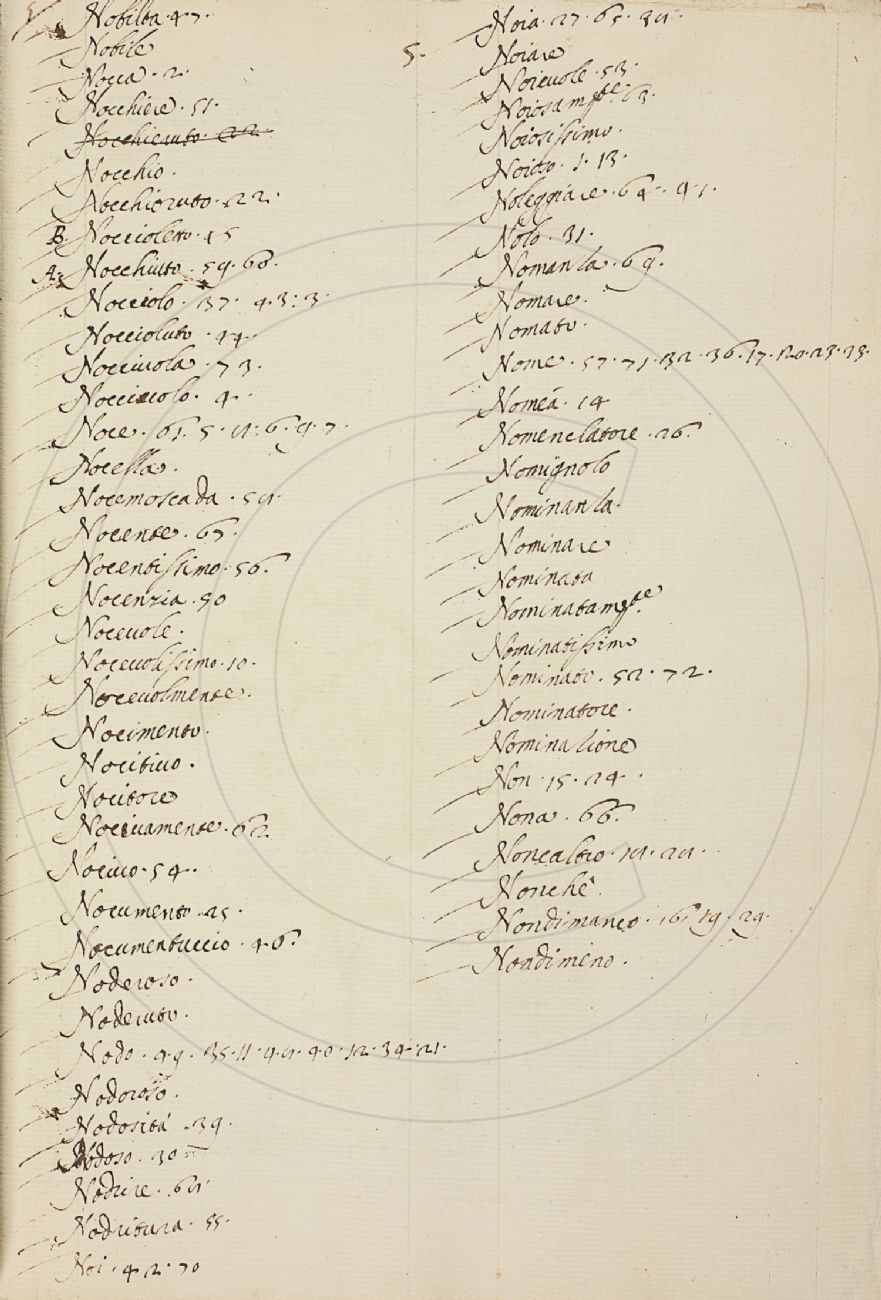 Nobiltà. 47.
Nobile
Nocca. 2.
Nocchiere. 51.
Nocchieruto. 22.
Nocchio.
Nocchioruto. 22.
B. Noccioletto. 45
A. Nocchiuto. 59. 60.
Nocciolo. 37. 43: 3.
Noccioluto. 44.
Nocciuola. 73.
Nocciuolo. 4.
Noce. 61. 5. 6. 9. 7.
Nocella.
Nocemoscada.
Nocente. 67.
Nocentissimo. 56.
Nocenzia. 50
Nocevole.
Nocevolissimo. 10.
Nocevolmente.
Nocimento.
Nocitivo.
Nocitore
Nocivamente. 62.
Nocivo. 54.
Nocumento. 25.
Nocumentuccio. 46.
Noderoso.
Noderuto.
Nodo. 49. 35. 11. 40. 12. 34. 21.
Nodoroso.
Nodosità. 39.
Nodoso. 30
Nodrire.
Nodritura. 55.
Noi. 42. 70
5.
Noia. 27. 65.
Noiare
Noievole. 53.
Noiosam.te 63.
Noiosissimo.
Noioso. 1. 13.
Noleggiare. 64. 41.
Nolo. 31.
Nomanza. 69.
Nomare.
Nomato.
Nome. 57. 71. 32. 36. 17. 120. 23. 33.
Nomèa. 14
Nomenclatore. 26.
Nomignolo
Nominanza.
Nominare
Nominata
Nominatam.te
Nominatissimo
Nominato. 52. 72.
Nominatore.
Nominazione
Non. 15. 24.
Nona. 66.
Noncaltro.
Nonchè.
Nondimanco. 16. 19. 29.
Nondimeno.